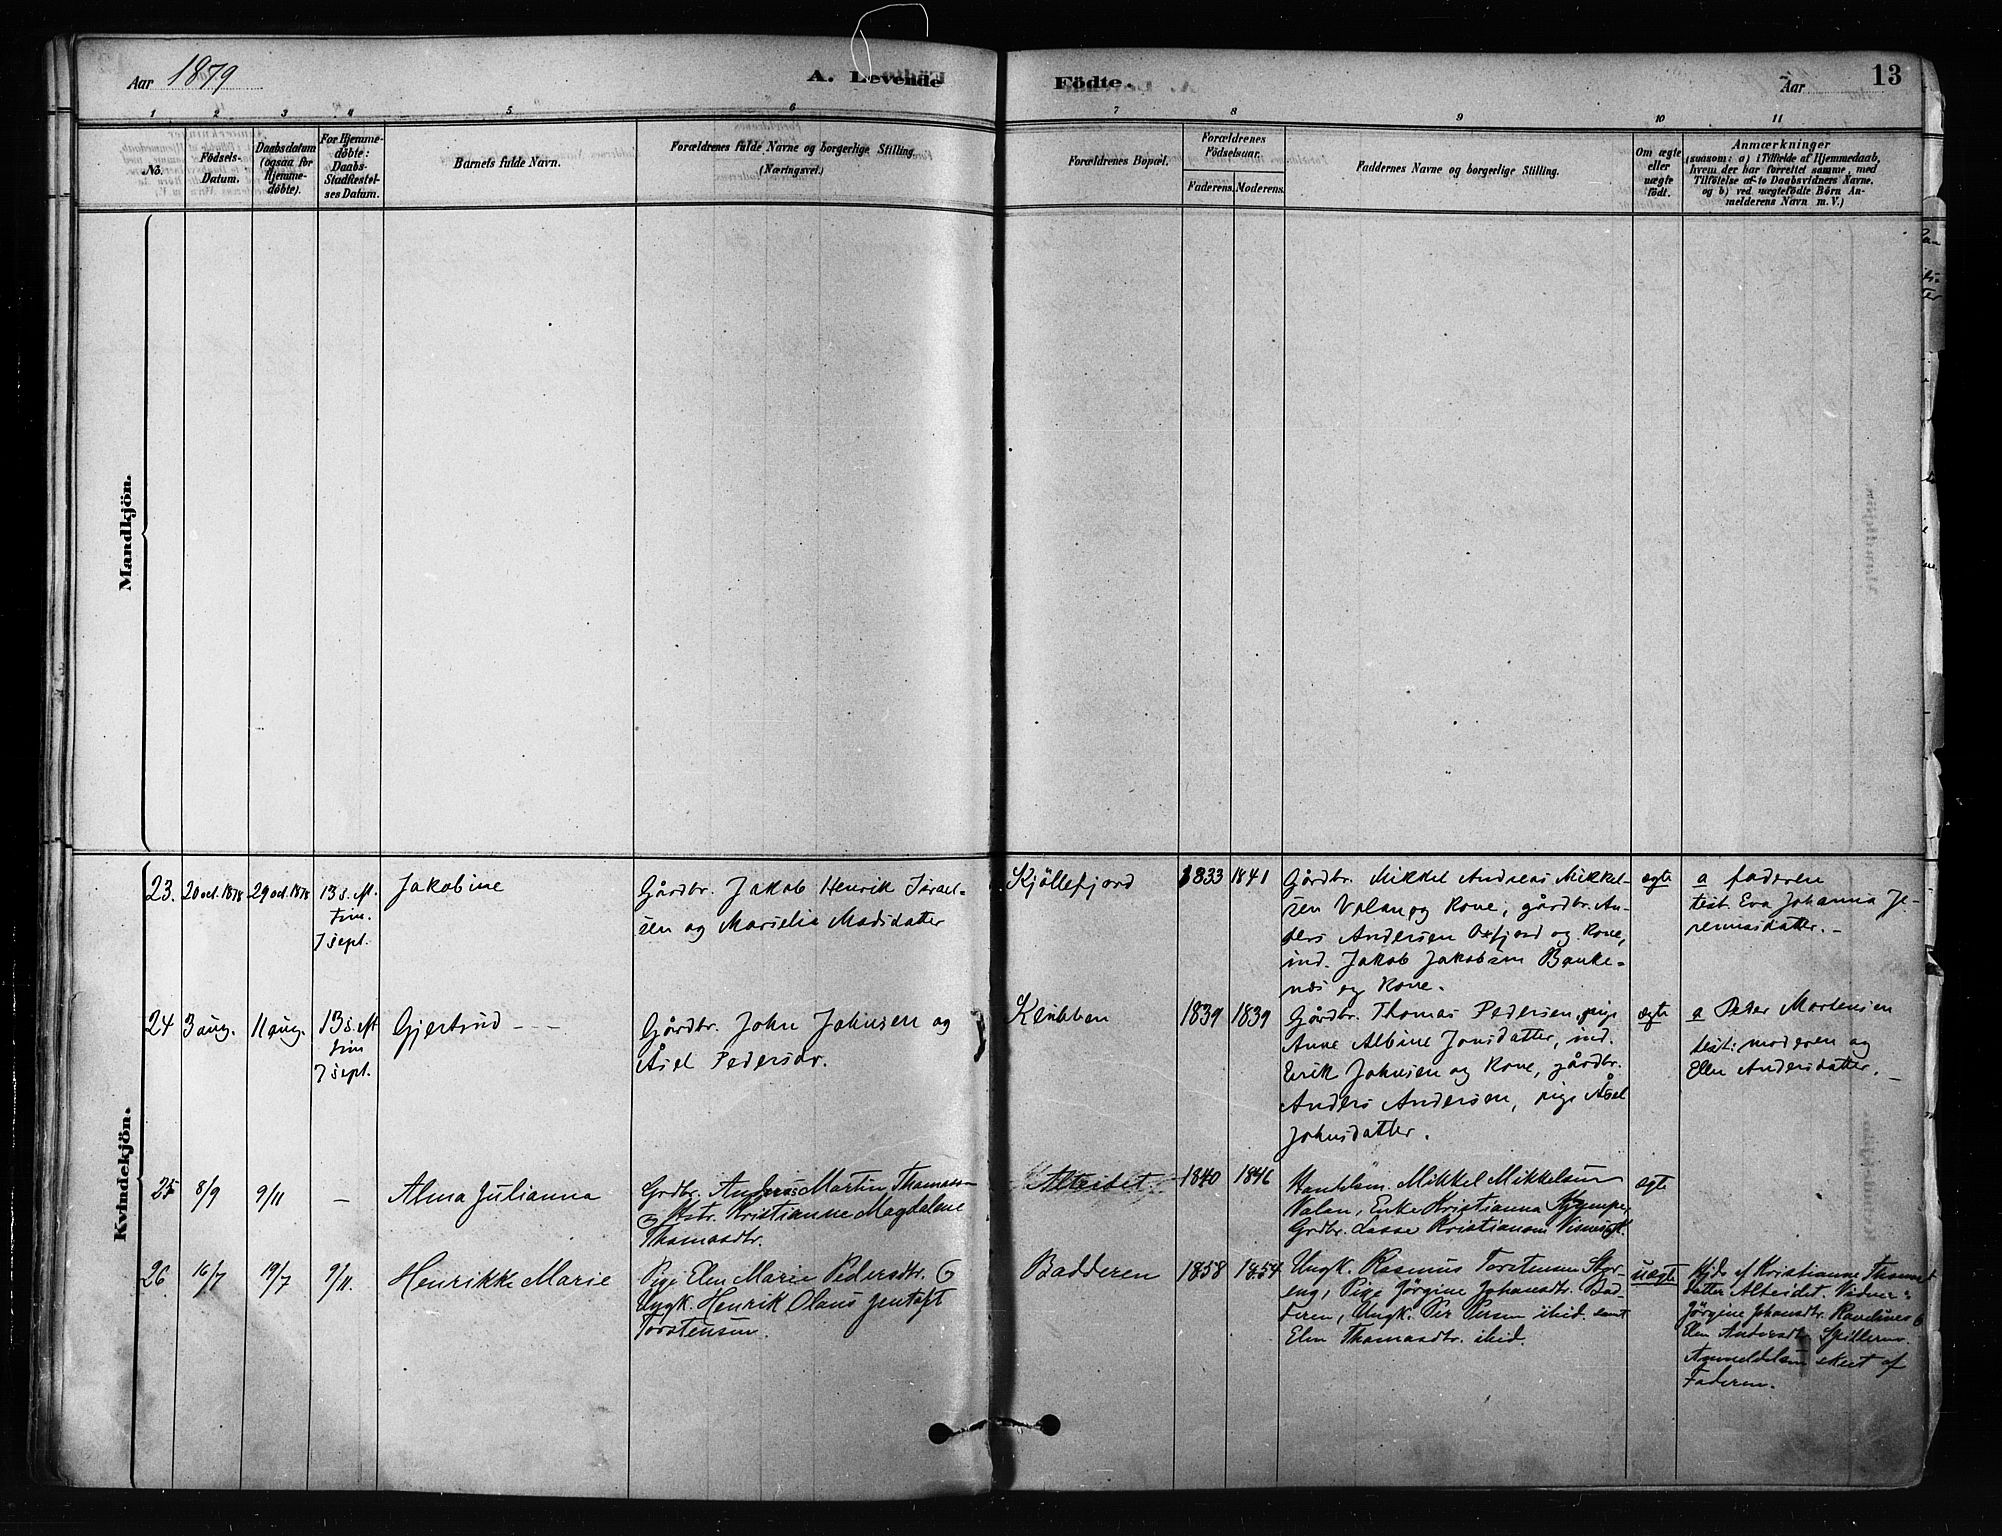 Aar 1879
A. Levende Födte.
Aar
13
1 2 3 4 5 6 7 8 9 10 11
No.
Födsels-
Datum.
Daabsdatum
(ogsaa for
Hjemme-
döbte).
For Hjemme-
döbte:
Daabs-
Stadfæstel-
ses Datum.
Barnets fulde Navn.
Forældrenes fulde Navne og borgerlige Stilling.
(Næringsvei.)
Forældrenes Bopæl.
Forældrenes
Födselsaar.
Faderens. Moderens.
Faddernes Navne og borgerlige Stilling.
Om ægte
eller
uægte
födt.
Anmærkninger
(saasom: a) i Tilfælde af Hjemmedaab,
hvem der har forrettet samme, med
Tilföielse af to Daabsvidners Navne,
og b) ved uægtefödte Börn An-
melderens Navn m. V.)
Mandkjön.
Kvindekjön.
23.
20 oct. 1878
29 oct. 1878
13 s. Æ.
trin.
7 sept.
Jakobine
Gårdbr. Jakob Henrik Israel-
sen og Marselie Madsdatter
Kjöllefjord
1833
1841
Gårdbr. Mikkel Andreas Mikkel-
sen Valan og Kone, gårdbr. An-
ders Andersen Oxfjord og Kone,
ind. Jakob Jakobsen Banke-
nds og Kone.
ægte
a faderen
test. Eva Johanna Je-
remiasdatter.
24
3 aug.
11 aug.
13 s. Æ
trin
7 sept.
Gjertrud
Gårdbr. John Johnsen og
Åsel Pedersdr.
Klubben
1839
1839
Gårdbr. Thomas Pedersen, pige
Anne Albine Jonsdatter, ind.
Erik Johnsen og Kone, gårdbr.
Anders Andersen, pige Åsel
Johnsdatter.
ægte
a Peder Mortensen
test: moderen og
Ellen Andersdatter.
25
8/9
9/11
Alma Julianna
Grdbr. Andreas Martin Thomas-
Hstr. Kristianne Magdalene
Thomasdtr.
Alteidet
1840
1846
Handelsm. Mikkel Mikkelsen
Valan, Enke Kristianna Kjempe,
Grdbr. Lasse Kristiansen
ægte
26.
16/7
19/7
9/11.
Henrikke Marie
Pige Elen Marie Pedersdtr. &
Ungk. Henrik Olaus Jentoft
Torstensen.
Badderen
1858
1854
Ungk. Rasmus Torstensen Stor-
eng, Pige Jörgine Johansdtr. Bad-
deren, Ungk. Per Persen ibid. samt
Elen Thomasdtr. ibid.
uægte
Hjdb. af Kristianne Thomas-
datter Alteidet. Vidner:
Jörgine Johansdtr. &
Elen Andersdtr. Spilderen.
Anmeldelsen skeet af
Faderen.